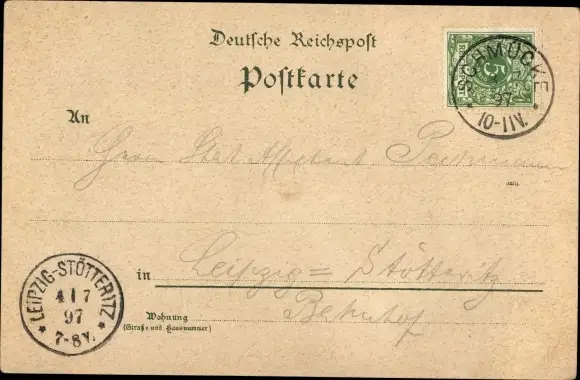 Deutsche Reichspost
Postkarte
SCHMÜCKE
97
10-11V.
5
An
Herrn Stat. Assistent
in Leipzig=Stötteritz
Bahnhof
Wohnung
(Straße und Hausnummer)
LEIPZIG-STÖTTERITZ
4 7
97
7-8V.